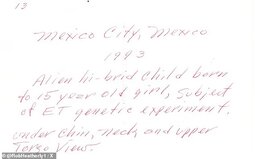 13
Mexico City, Mexico
1993
Alien hi-brid child born
to 15 year old girl, subject
of ET genetic experiment,
under chin, neck and upper
Torso View.